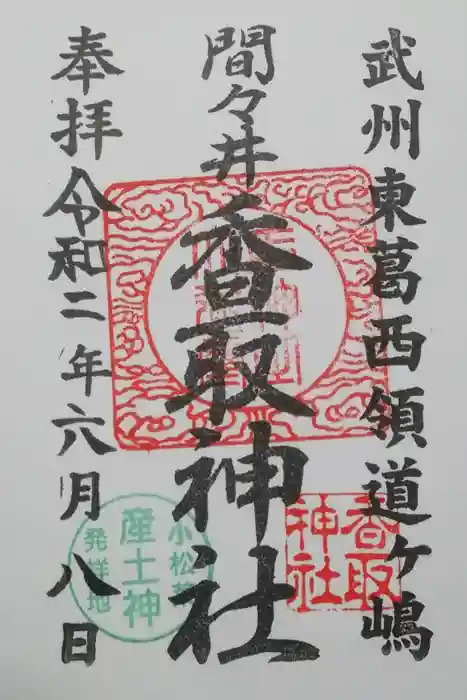 武州東葛西領道ヶ嶋
間々井
香取神社
奉拝
令和二年六月八日
香取
神社
産土神
発祥地